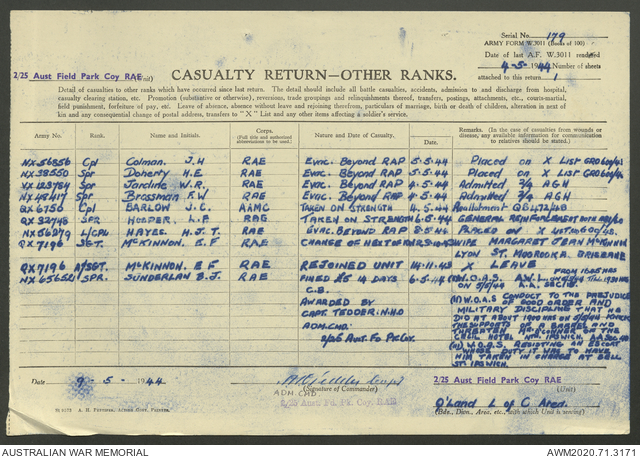 Serial No. 179
ARMY FORM W.3011 (Books of 100)
Date of last A.F. W.3011 rendered
4-5-1944 Number of sheets
attached to this return 1
2/25 Aust Field Park Coy RAE (Unit)
CASUALTY RETURN—OTHER RANKS.
Detail of casualties to other ranks which have occurred since last return. The detail should include all battle casualties, accidents, admission to and discharge from hospital,
casualty clearing station, etc. Promotion (substantive or otherwise), reversions, trade groupings and relinquishments thereof, transfers, postings, attachments, etc., courts-martial,
field punishment, forfeiture of pay, etc. Leave of absence, absence without leave and rejoining therefrom, particulars of marriage, birth or death of children, alteration in next of
kin and any consequential change of postal address, transfers to "X" List and any other items affecting a soldier's service.
Army No. Rank. Name and Initials. Corps. (Full title and authorised abbreviations to be used.) Nature and Date of Casualty. Date. Remarks. (In the case of casualties from wounds or disease, any available information for communication to relatives should be stated.)
NX56856 Cpl Colman. J.H RAE Evac. Beyond RAP 5-5-44 Placed on X List GRO600/43
NX38550 Spr Doherty H.E. RAE Evac. Beyond RAP 4-5-44 Placed on X List
VX123784 Spr Jardine W.R. RAE Evac. Beyond RAP 4-5-44 Admitted AGH
NX48417 Spr Brossman F.W RAE Evac. Beyond RAP 4-5-44 Admitted AGH
QX6755 Cpl BARLOW J.C. AAMC TAKEN ON STRENGTH 4-5-44
QX32748 SPR HOOPER. L.P RAE TAKEN ON STRENGTH 6-5-44 GENERAL REINFORCEMENT
NX56279 L/CPL HAYES. H.J.T. RAE EVAC. BEYOND RAP 8-5-44 PLACED ON X LIST
QX7196 SGT. McKINNON. E.F RAE CHANGE OF NEXT OF KIN WIFE MARGARET JEAN McKINNON
LYON ST. MOOROOKA. BRISBANE
QX7196 A/SGT. McKINNON. E F RAE REJOINED UNIT 14-11-43 X LEAVE
NX65652 SPR. SUNDERLAN B.J. RAE FINED £5 14 DAYS 6-5-44 W.O.A.S. A.W.L. FROM
C.B. ON 5/5/44
AWARDED BY (II) W.O.A.S CONDUCT TO THE PREJUDICE
CAPT. TEDDER. N.H.O OF GOOD ORDER AND
ADM. CMD. MILITARY DISCIPLINE THAT HE
2/25 Aust. Fd Pk Coy. DID AT ABOUT 1900 HRS ON 5/5/44
THE SUPPORTS OF A BARREL AND
THREATEN MR O'CONNOR OF THE
CECIL HOTEL NTH. IPSWICH.
(III) W.O.A.S. RESISTING AN ESCORT
WHOSE DUTY IT WAS TO HAVE
HIM TAKEN IN CHARGE AT BELL
ST. IPSWICH.
Date 9-5-1944
(Signature of Commander)
ADM. CMD
2/25 Aust. Fd. Pk. Coy. RAE
2/25 Aust Field Park Coy RAE
(Unit)
Q'Land L of C Area.
(Bde., Divn., Area, etc., with which Unit is serving)
AUSTRALIAN WAR MEMORIAL
AWM2020.71.3171